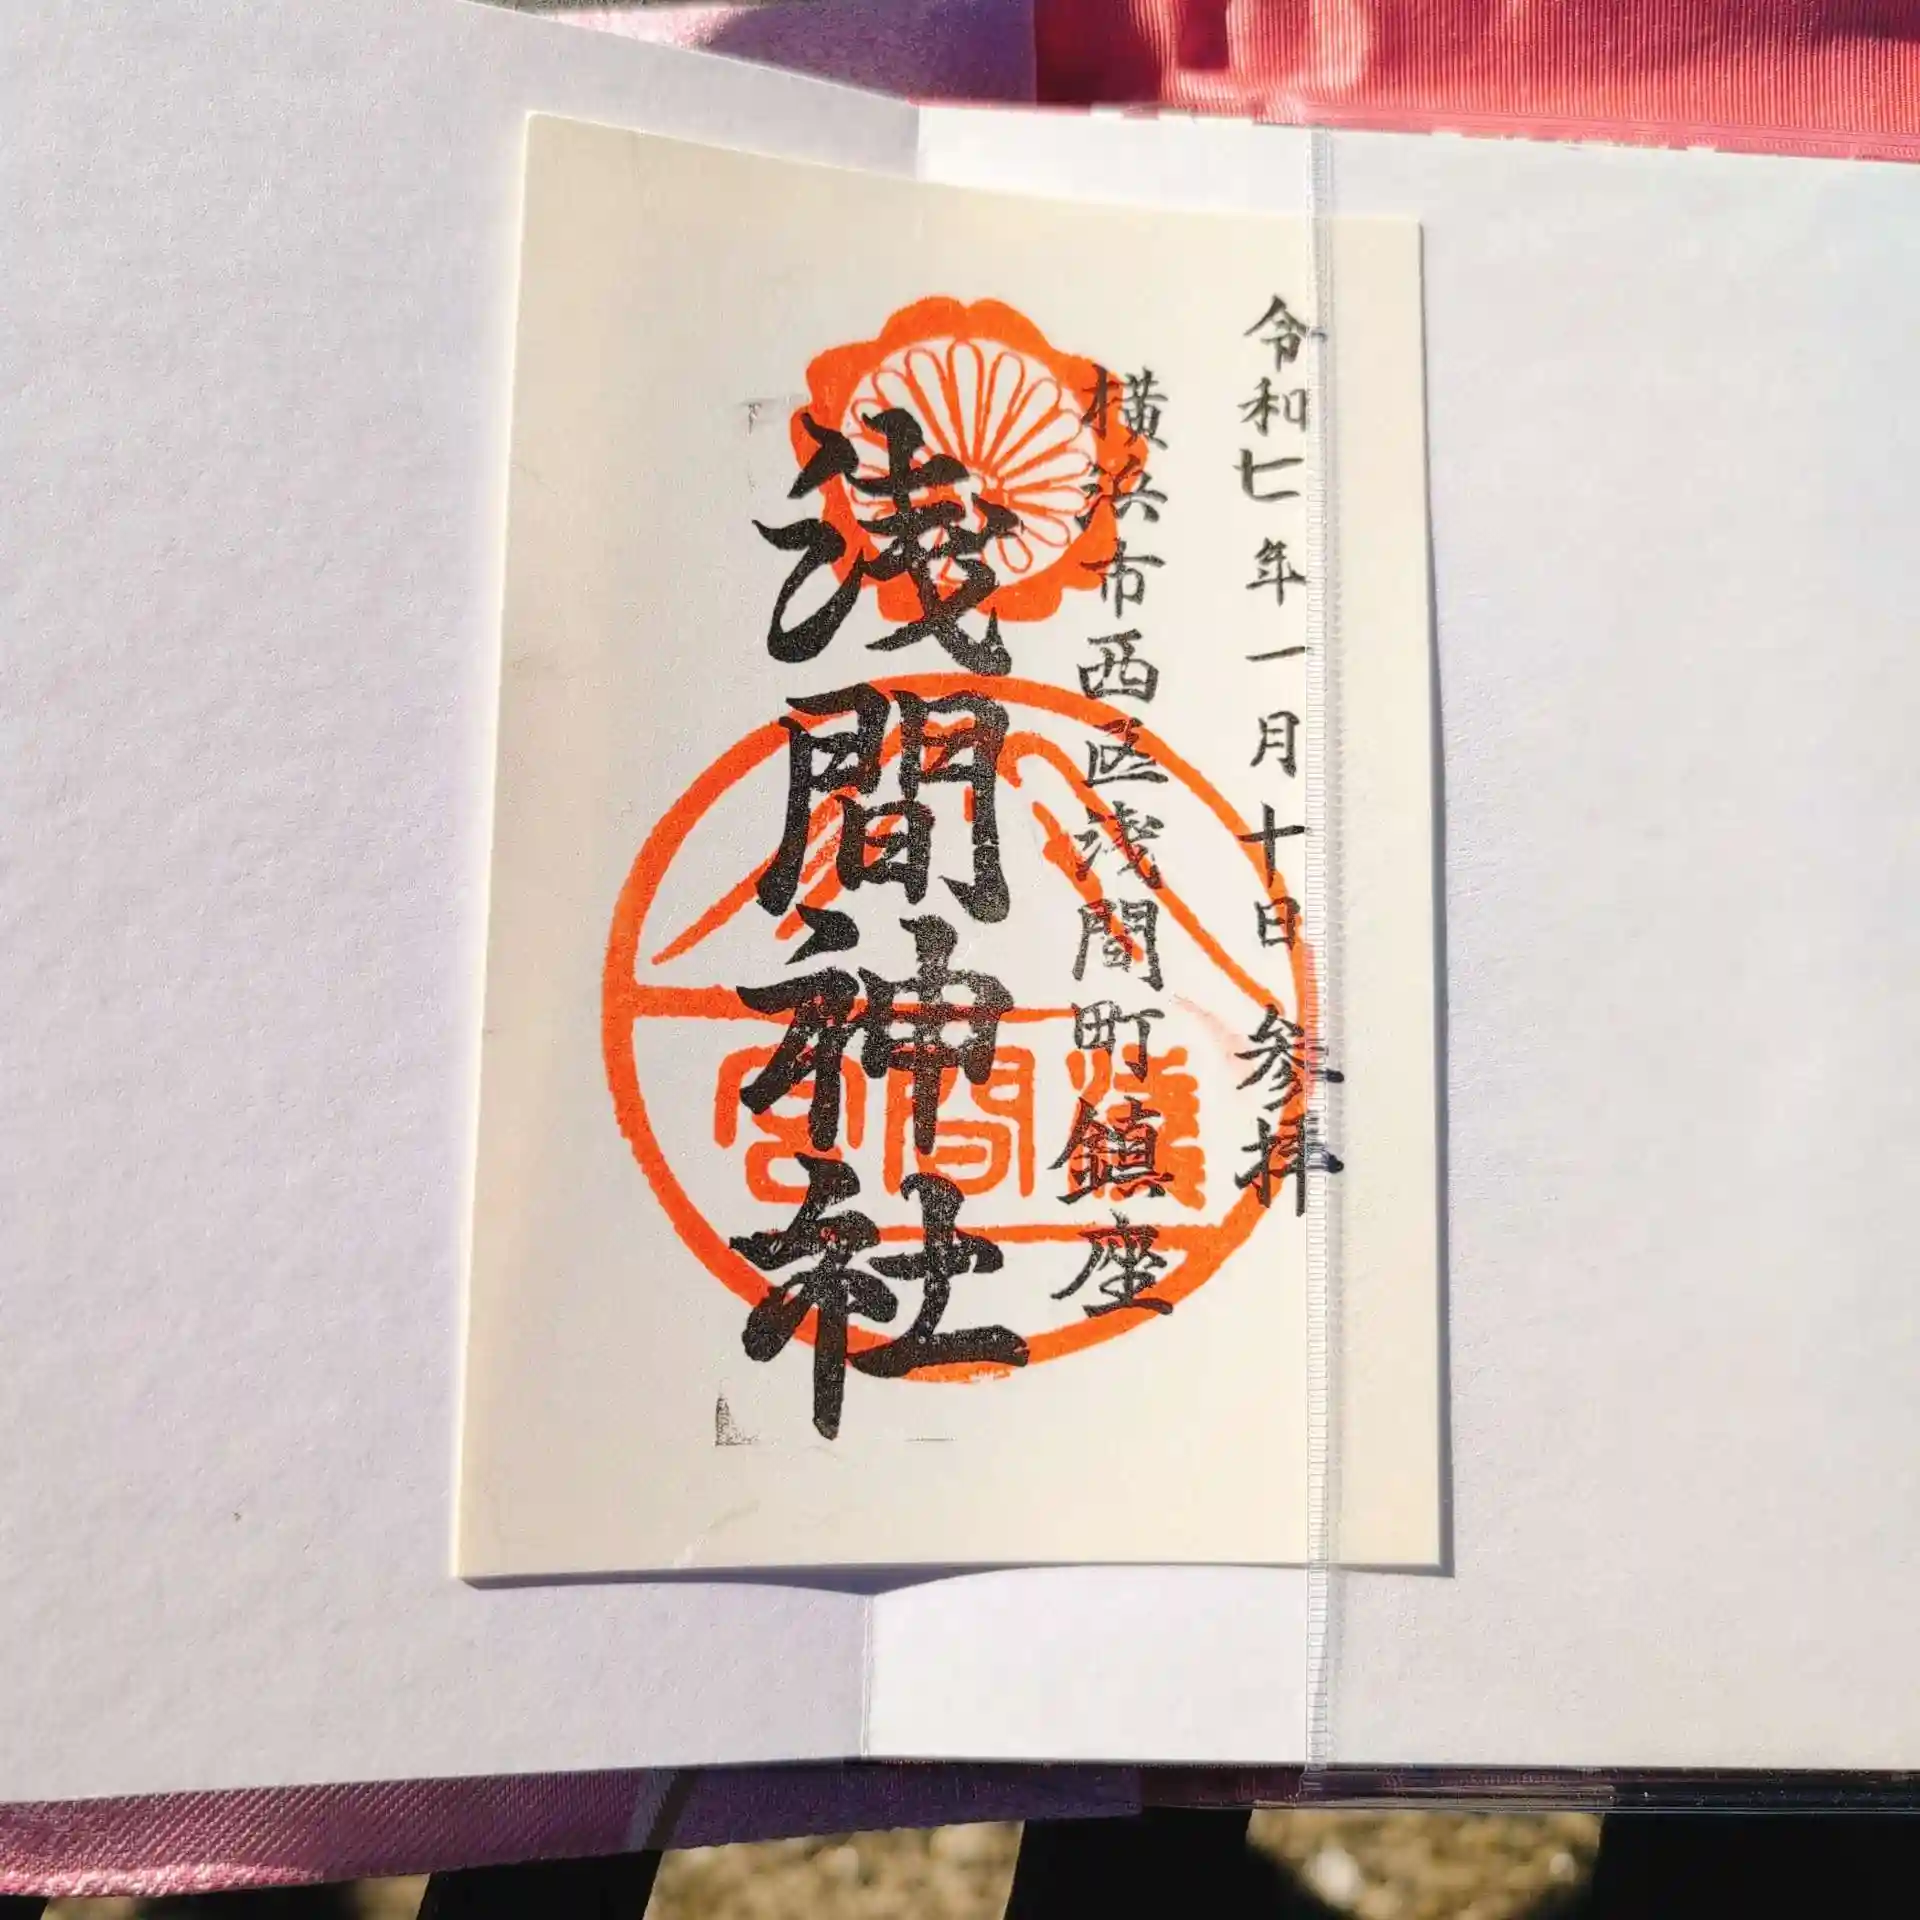 令和七年一月十日 参拝
横浜市西区浅間町鎮座
浅間神社
浅間宮